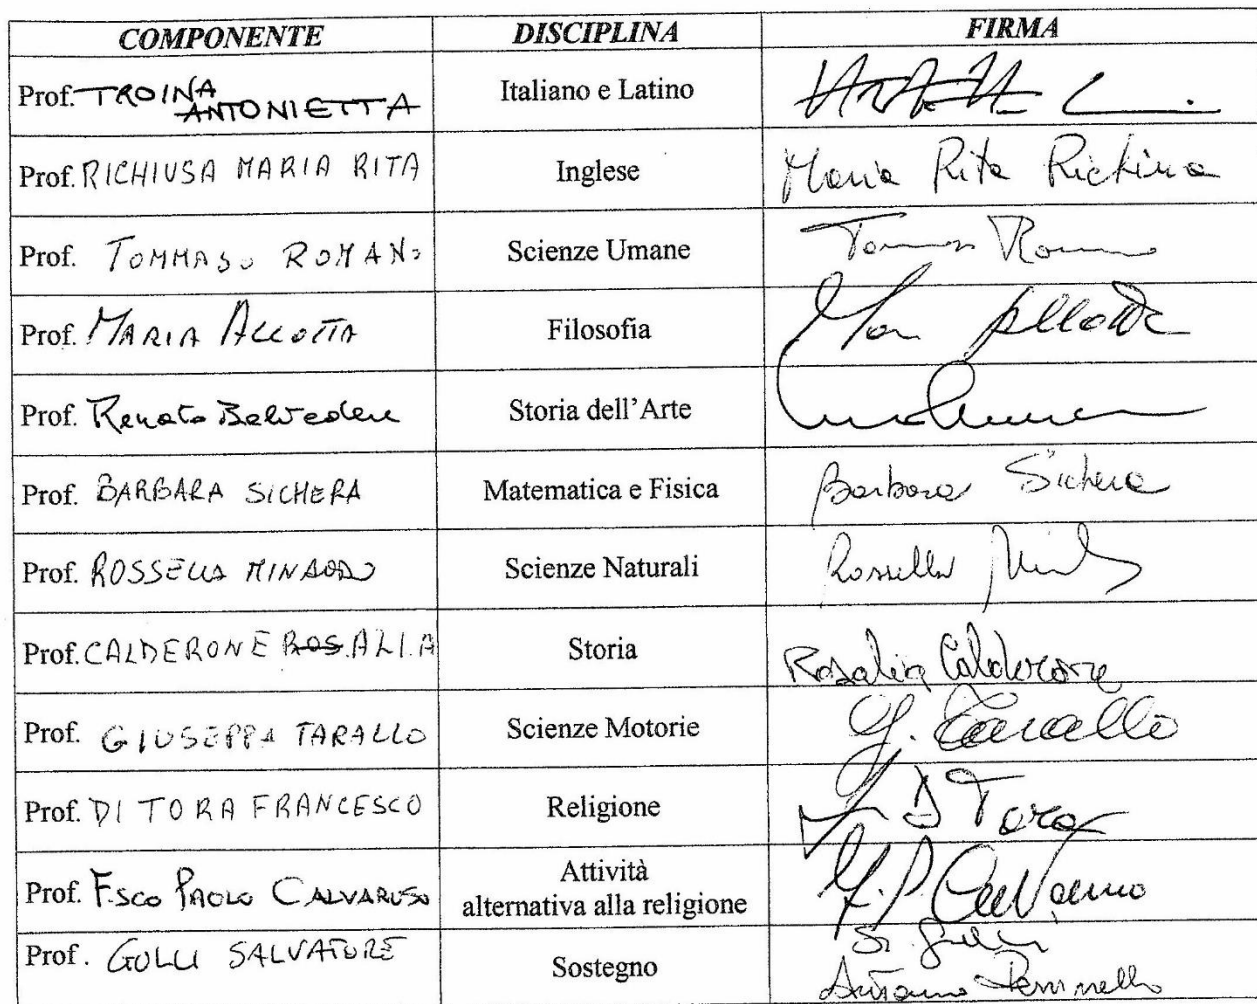 COMPONENTE DISCIPLINA FIRMA
Prof. TROINA Italiano e Latino
ANTONIETTA
Prof. RICHIUSA MARIA RITA Inglese Maria Rita Richiusa
Prof. TOMMASO ROMANO Scienze Umane Tommaso Romano
Prof. MARIA ALLOTTA Filosofia Allotta
Prof. Renato Belvedere Storia dell'Arte
Prof. BARBARA SICHERA Matematica e Fisica Barbara Sichera
Prof. ROSSELLA MINAODO Scienze Naturali Rossella
Prof. CALDERONE ROSALIA Storia Rosalia Calderone
Prof. GIUSEPPA TARALLO Scienze Motorie G. Tarallo
Prof. DI TORA FRANCESCO Religione D Tora
Prof. F.sco PAOLO CALVARUSO Attività F. P. Calvaruso
alternativa alla religione
Prof. GULLI SALVATORE Sostegno S. Gulli
Antonino